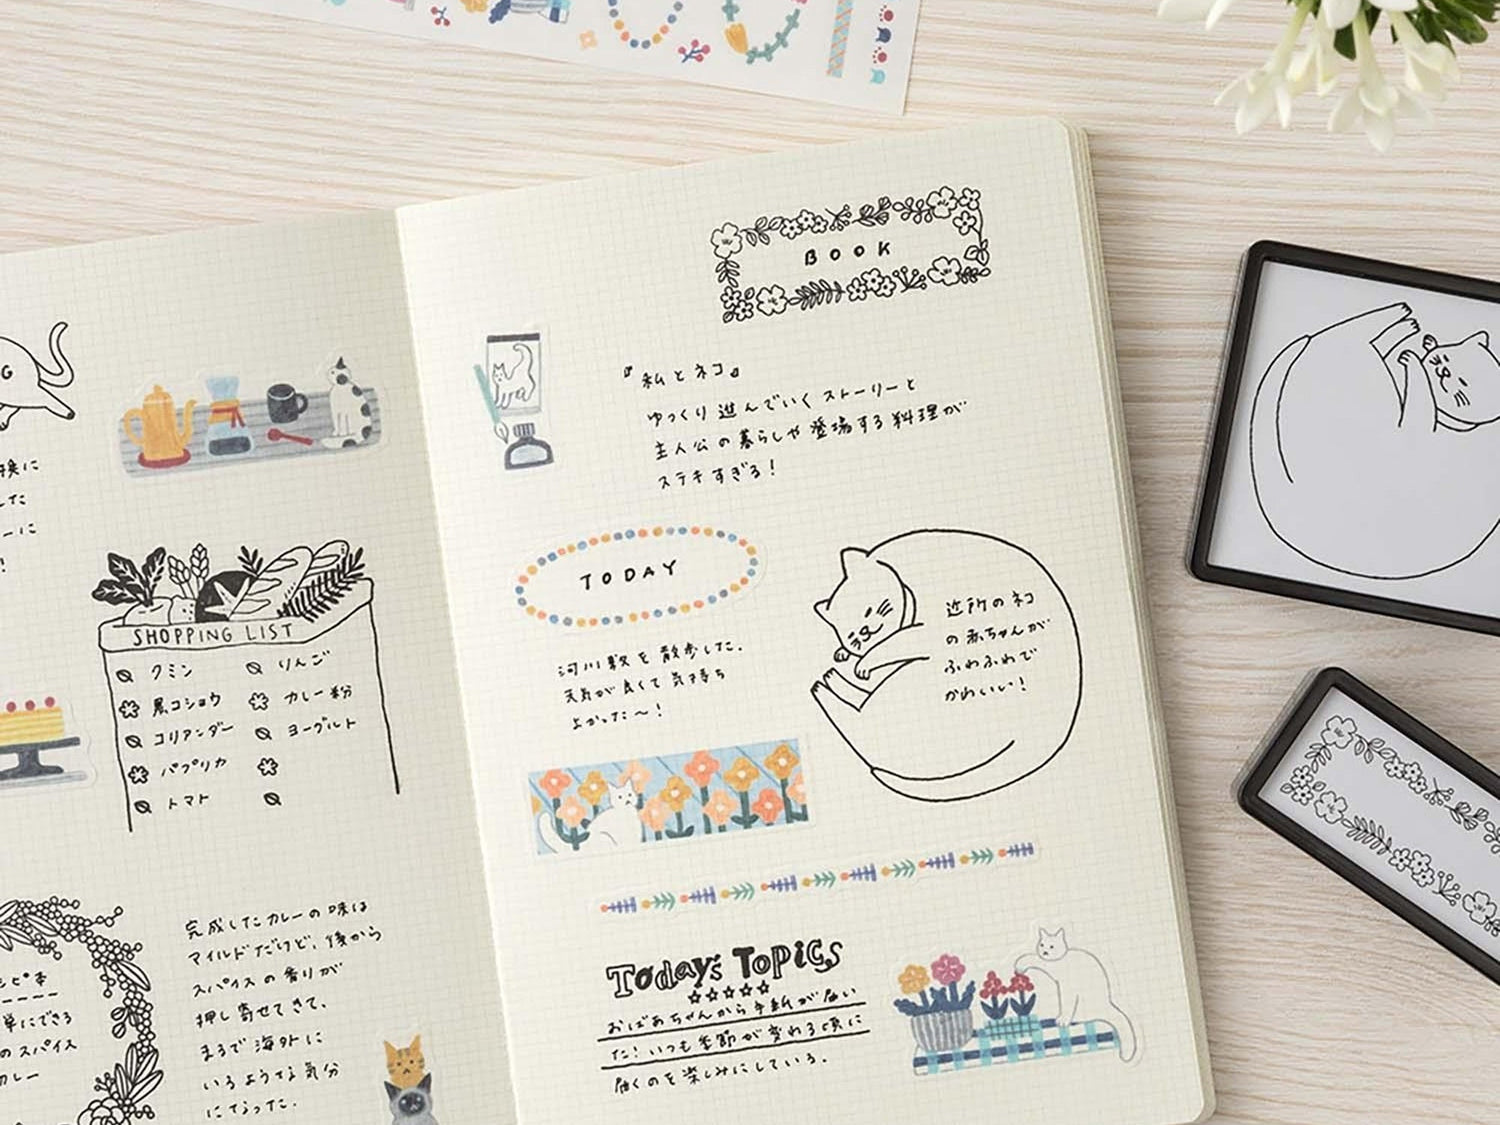 G
換に
した
ーに
!
SHOPPING LIST
クミン
りんご
黒コショウ
カレー粉
コリアンダー
ヨーグルト
パプリカ
トマト
シピ本
単にできる
のスパイス
カレー
完成したカレーの味は
マイルドだけど、後から
スパイスの香りが
押し寄せてきて、
まるで海外に
いるような気分
になった.
BOOK
『私とネコ』
ゆっくり進んでいくストーリーと
主人公の暮らしや登場する料理が
ステキすぎる!
TODAY
河川敷を散歩した.
天気が良くて気持ち
よかった〜!
近所のネコ
の赤ちゃんが
ふわふわで
かわいい!
Today's Topics
おばあちゃんから手紙が届い
た! いつも季節が変わる頃に
届くのを楽しみにしている.